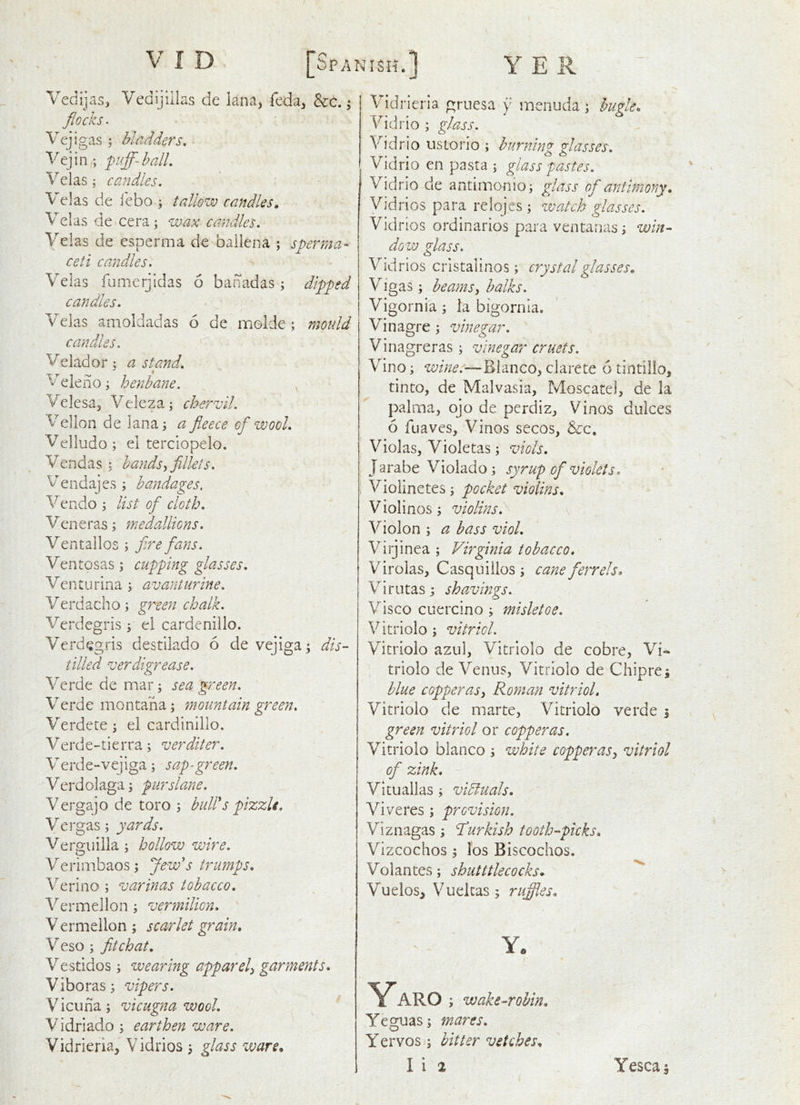 VID [SPANISH.] YER
Vedijas, Vedijillas de lana, ſeda, &c.;
flocks.
Vejigas ; bladders.
Vejin ; puff-ball.
Velas ; candles.
Velas de ſebo ; tallow candles.
Velas de cera ; wax candles.
Velas de esperma de ballena ; sperma-
ceti candles.
Velas ſumerjidas ó bañadas ; dipped
candles.
Velas amoldadas ó de molde ; mould
candles.
Velador ; a stand.
Veleño ; henbane.
Velesa, Veleza ; chervil.
Vellon de lana ; a fleece of wool.
Velludo ; el terciopelo.
Vendas ; bands, fillets.
Vendajes ; bandages.
Vendo ; list of cloth.
Veneras ; medallions.
Ventallos ; fire fans.
Ventosas ; cupping glasses.
Venturina ; avanturine.
Verdacho ; green chalk.
Verdegris ; el cardenillo.
Verdegris destilado ó de vejiga ; dis-
tilled verdigrease.
Verde de mar ; sea green.
Verde montaña ; mountain green.
Verdete ; el cardinillo.
Verde-tierra ; verditer.
Verde-vejiga ; sap-green.
Verdolaga ; purslane.
Vergajo de toro ; bull's pizzle.
Vergas ; yards.
Verguilla ; hollow wire.
Verimbaos ; Jew's trumps.
Verino ; varinas tobacco.
Vermellon ; vermilion.
Vermellon ; scarlet grain.
Veso ; fitchat.
Vestidos ; wearing apparel, garments.
Viboras ; vipers.
Vicuña ; vicugna wool.
Vidriado ; earthen ware.
Vidrieria, Vidrios ; glass ware.
Vidrieria gruesa y menuda ; bugle.
Vidrio ; glass.
Vidrio ustorio ; burning glasses.
Vidrio en pasta ; glass pastes.
Vidrio de antimonio ; glass of antimony.
Vidrios para relojes ; watch glasses.
Vidrios ordinarios para ventanas ; win-
dow glass.
Vidrios cristalinos ; crystal glasses.
Vigas ; beams, balks.
Vigornia ; la bigornia.
Vinagre ; vinegar.
Vinagreras ; vinegar cruets.
Vino ; wine.—Blanco, clarete ó tintillo,
tinto, de Malvasia, Moscatel, de la
palma, ojo de perdiz, Vinos dulces
ó ſuaves, Vinos secos, &c.
Violas, Violetas ; viols.
Jarabe Violado ; syrup of violets.
Violinetes ; pocket violins.
Violinos ; violins.
Violon ; a bass viol.
Virjinea ; Virginia tobacco.
Virolas, Casquillos ; cane ferrels.
Virutas ; shavings.
Visco cuercino ; misletoe.
Vitriolo ; vitriol.
Vitriolo azul, Vitriolo de cobre, Vi-
triolo de Venus, Vitriolo de Chipre ;
blue copperas, Roman vitriol.
Vitriolo de marte, Vitriolo verde ;
green vitriol or copperas.
Vitriolo blanco ; white copperas, vitriol
of zink.
Vituallas ; victuals.
Viveres ; provision.
Viznagas ; Turkish tooth-picks.
Vizcochos ; los Biscochos.
Volantes ; shutttlecocks.
Vuelos, Vueltas ; ruffles.
Y.
YARO ; wake-robin.
Yeguas ; mares.
Yervos ; bitter vetches.
I i 2 Yesca ;